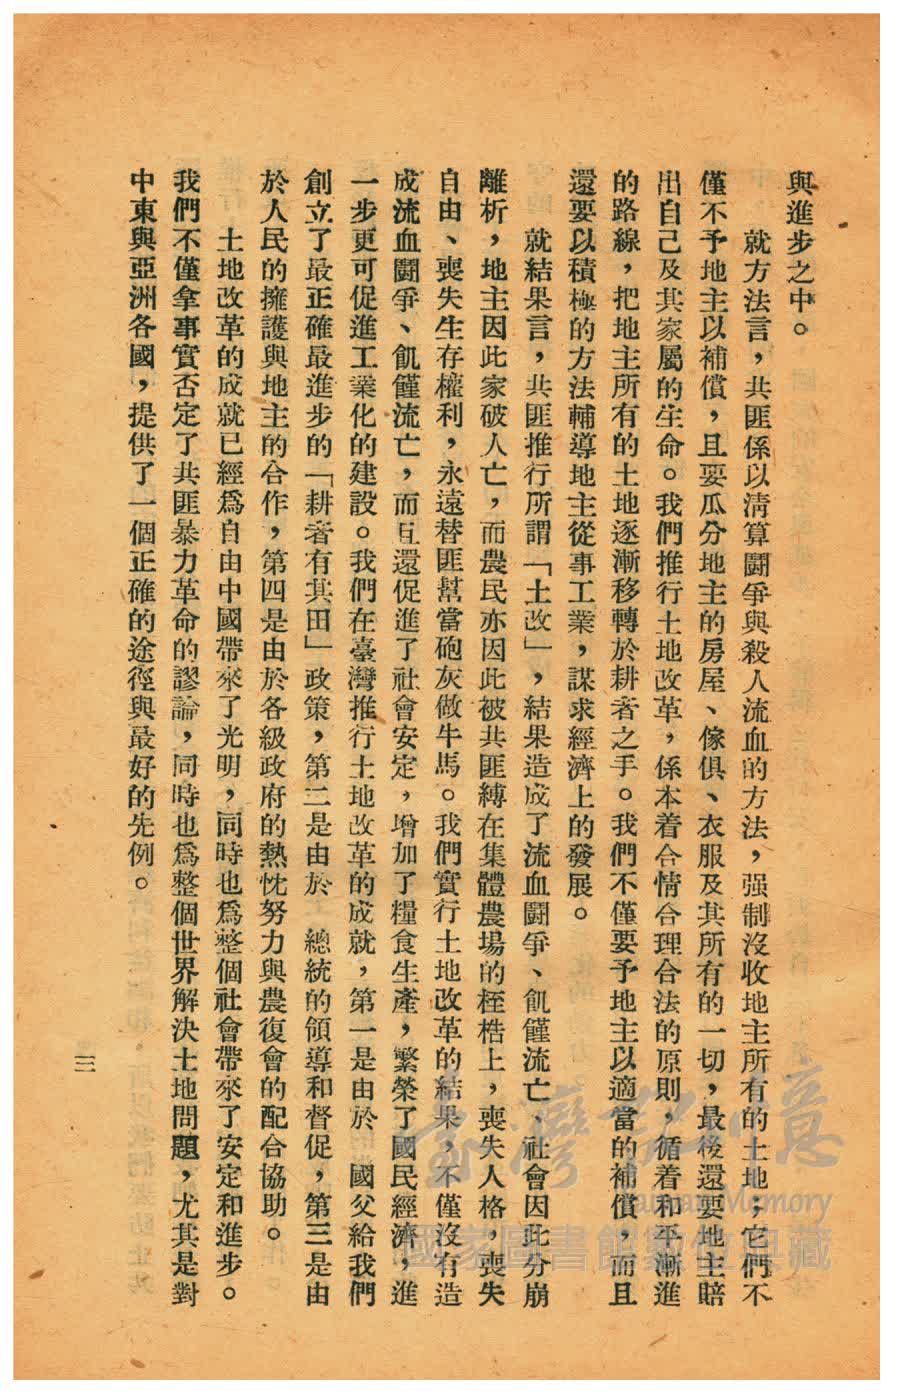 與進步之中。
就方法言，共匪係以清算鬪爭與殺人流血的方法，强制沒收地主所有的土地；它們不
僅不予地主以補償，且要瓜分地主的房屋、傢俱、衣服及其所有的一切，最後還要地主賠
出自己及其家屬的生命。我們推行土地改革，係本着合情合理合法的原則，循着和平漸進
的路線，把地主所有的土地逐漸移轉於耕者之手。我們不僅要予地主以適當的補償，而且
還要以積極的方法輔導地主從事工業，謀求經濟上的發展。
就結果言，共匪推行所謂「土改」，結果造成了流血鬪爭、飢饉流亡、社會因此分崩
離析，地主因此家破人亡，而農民亦因此被共匪縛在集體農場的桎梏上，喪失人格，喪失
自由、喪失生存權利，永遠替匪幫當砲灰做牛馬。我們實行土地改革的結果，不僅沒有造
成流血鬪爭、飢饉流亡，而且還促進了社會安定，增加了糧食生產，繁榮了國民經濟，進
一步更可促進工業化的建設。我們在臺灣推行土地改革的成就，第一是由於　國父給我們
創立了最正確最進步的「耕者有其田」政策，第二是由於　總統的領導和督促，第三是由
於人民的擁護與地主的合作，第四是由於各級政府的熱忱努力與農復會的配合協助。
土地改革的成就已經爲自由中國帶來了光明，同時也爲整個社會帶來了安定和進步。
我們不僅拿事實否定了共匪暴力革命的謬論，同時也爲整個世界解決土地問題，尤其是對
中東與亞洲各國，提供了一個正確的途徑與最好的先例。
三
臺灣記憶
Taiwan Memory
國家圖書館數位典藏